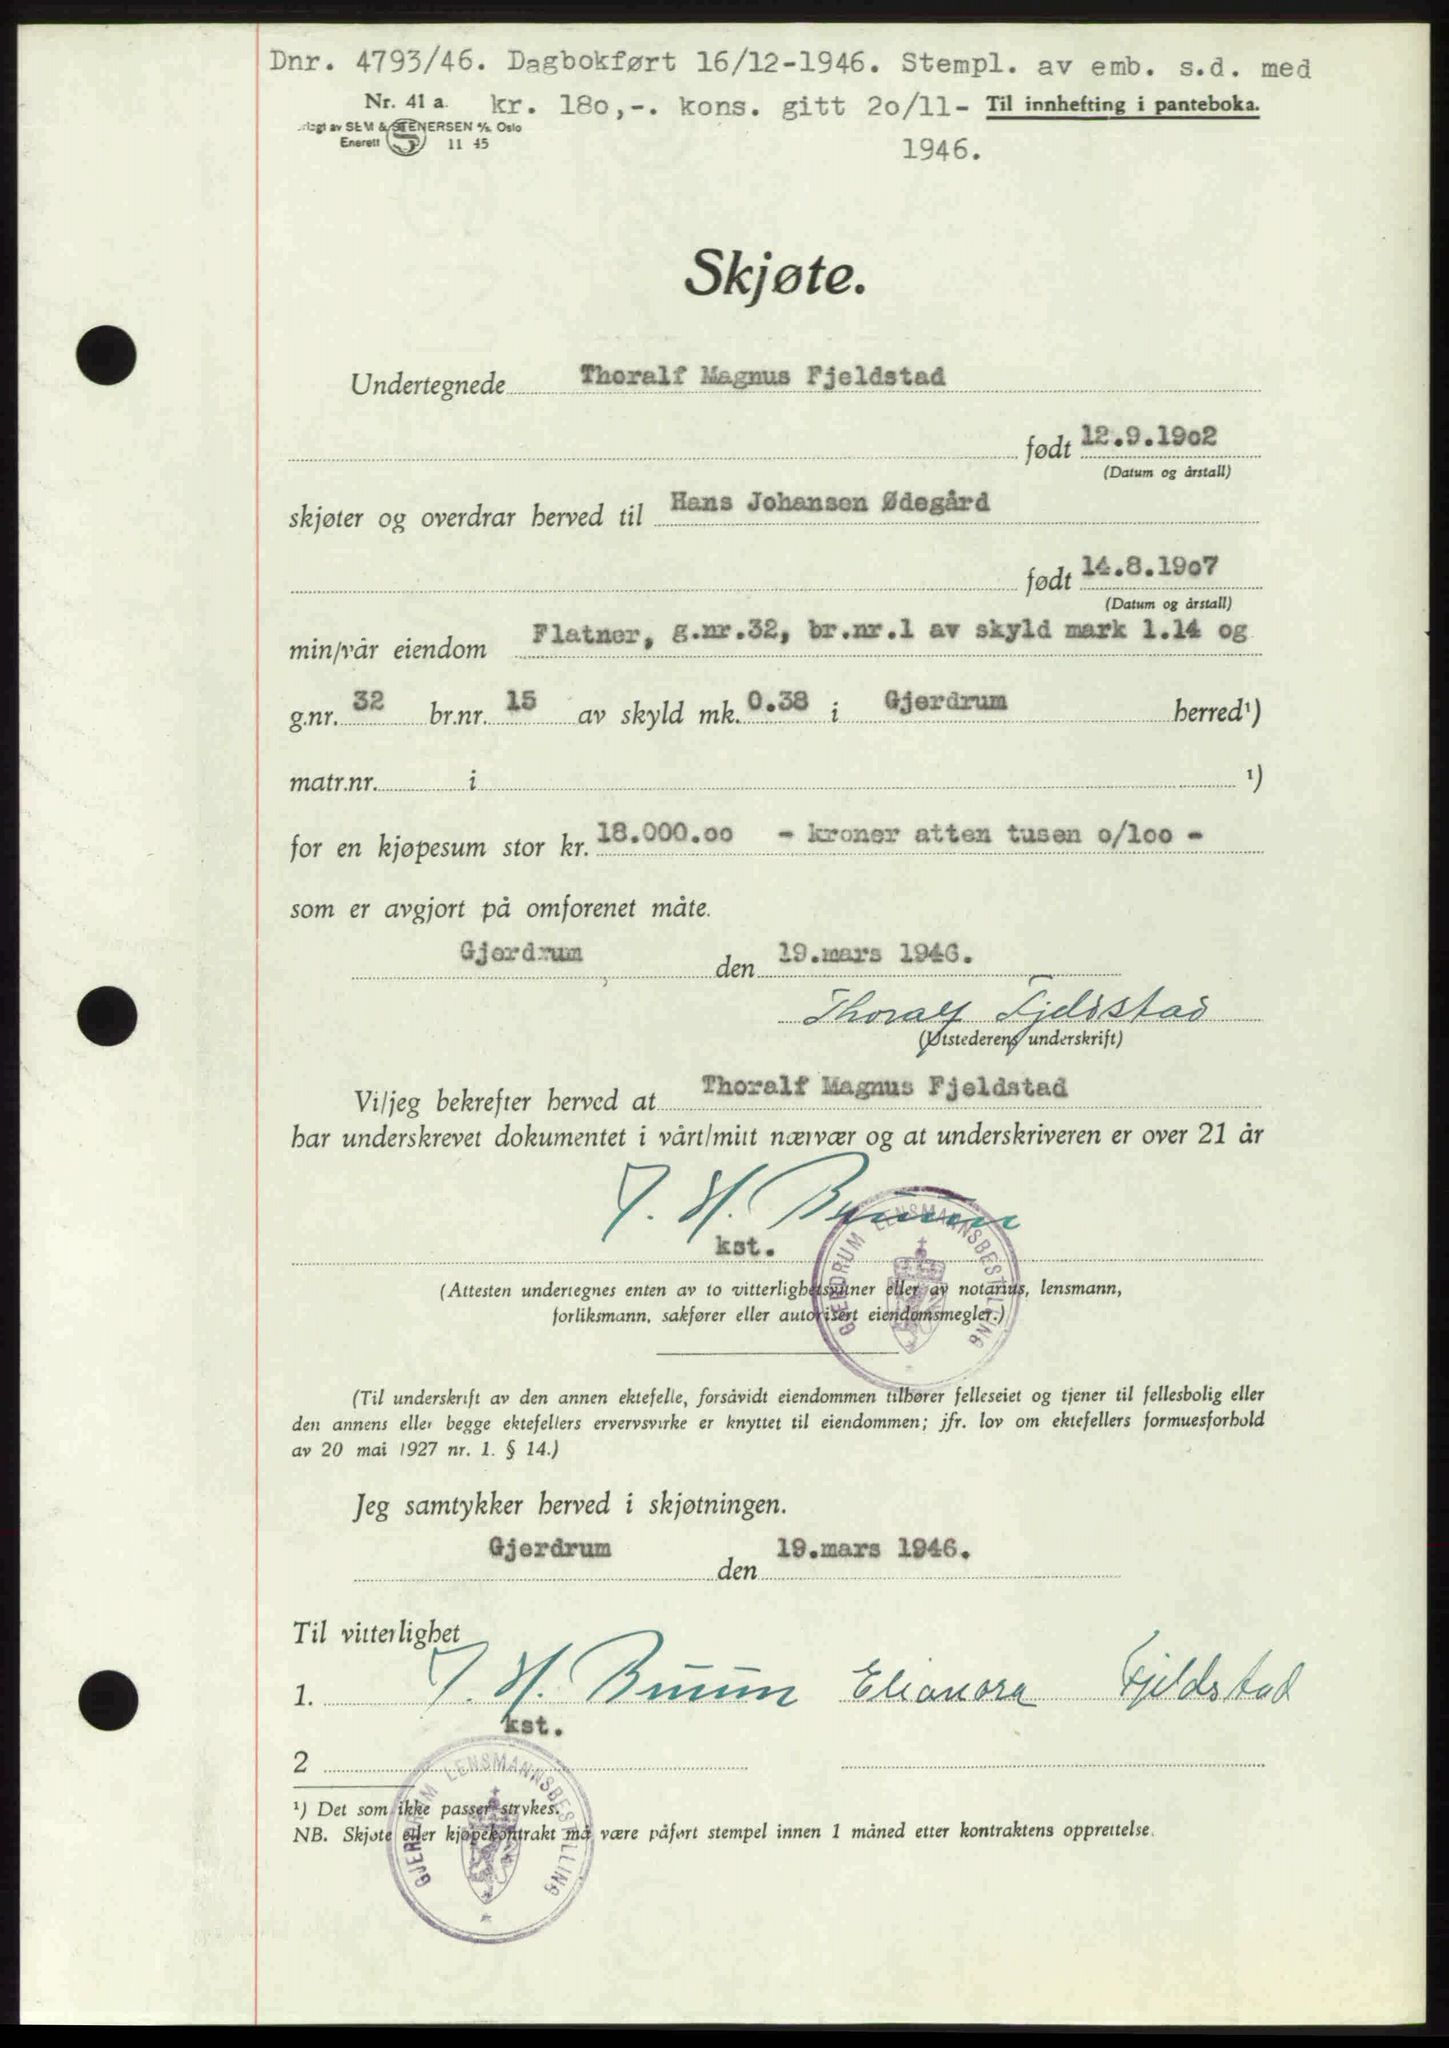 Dnr. 4793/46. Dagbokført 16/12-1946. Stempl. av emb. s.d. med
Nr. 41 a. kr. 180,-. kons. gitt 20/11- Til innhefting i panteboka.
av SEM & STENERSEN A/S. Oslo
Enerett S 11 45
1946.
Skjøte.
Undertegnede Thoralf Magnus Fjeldstad
født 12.9.1902
(Datum og årstall)
skjøter og overdrar herved til Hans Johansen Ødegård
født 14.8.1907
(Datum og årstall)
min/vår eiendom Flatner, g.nr.32, br.nr.1 av skyld mark 1.14 og
g.nr. 32 br.nr. 15 av skyld mk. 0.38 i Gjerdrum herred¹)
matr.nr. i ¹)
for en kjøpesum stor kr. 18.000.00 - kroner atten tusen 0/100 -
som er avgjort på omforenet måte.
Gjerdrum, den 19.mars 1946.
Thoralf Fjeldstad
(Utstederens underskrift)
Vi/jeg bekrefter herved at Thoralf Magnus Fjeldstad
har underskrevet dokumentet i vårt/mitt nærvær og at underskriveren er over 21 år
J. H. Bruun
kst.
GJERDRUM LENSMANNSBESTILLING
(Attesten undertegnes enten av to vitterlighetsvitner eller av notarius, lensmann,
forliksmann, sakfører eller autorisert eiendomsmegler.)
(Til underskrift av den annen ektefelle, forsåvidt eiendommen tilhører felleseiet og tjener til fellesbolig eller
den annens eller begge ektefellers ervervsvirke er knyttet til eiendommen; jfr. lov om ektefellers formuesforhold
av 20 mai 1927 nr. 1. § 14.)
Jeg samtykker herved i skjøtningen.
Gjerdrum den 19.mars 1946.
Til vitterlighet
1. J. H. Bruun Elianora Fjeldstad
kst.
2
GJERDRUM LENSMANNSBESTILLING
¹) Det som ikke passer strykes.
NB. Skjøte eller kjøpekontrakt må være påført stempel innen 1 måned etter kontraktens opprettelse.